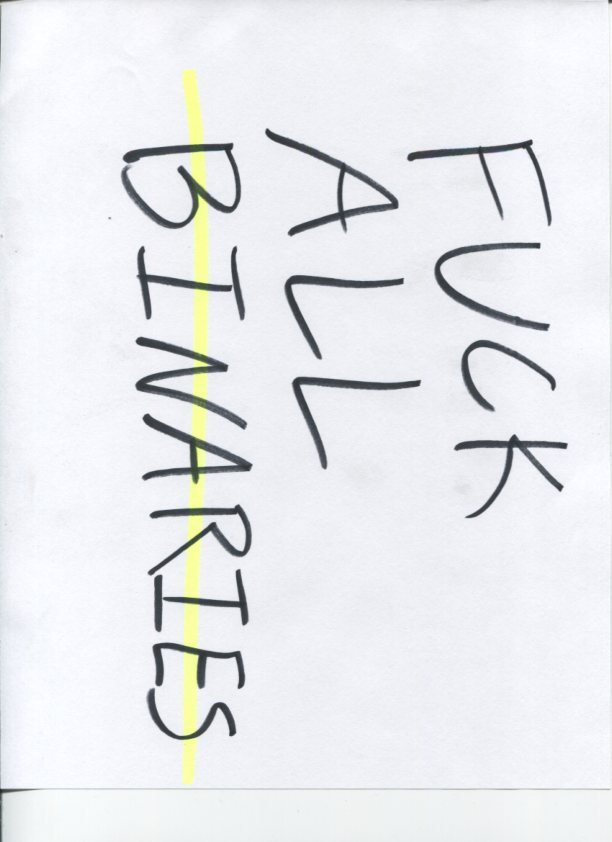 FUCK
ALL
BINARIES